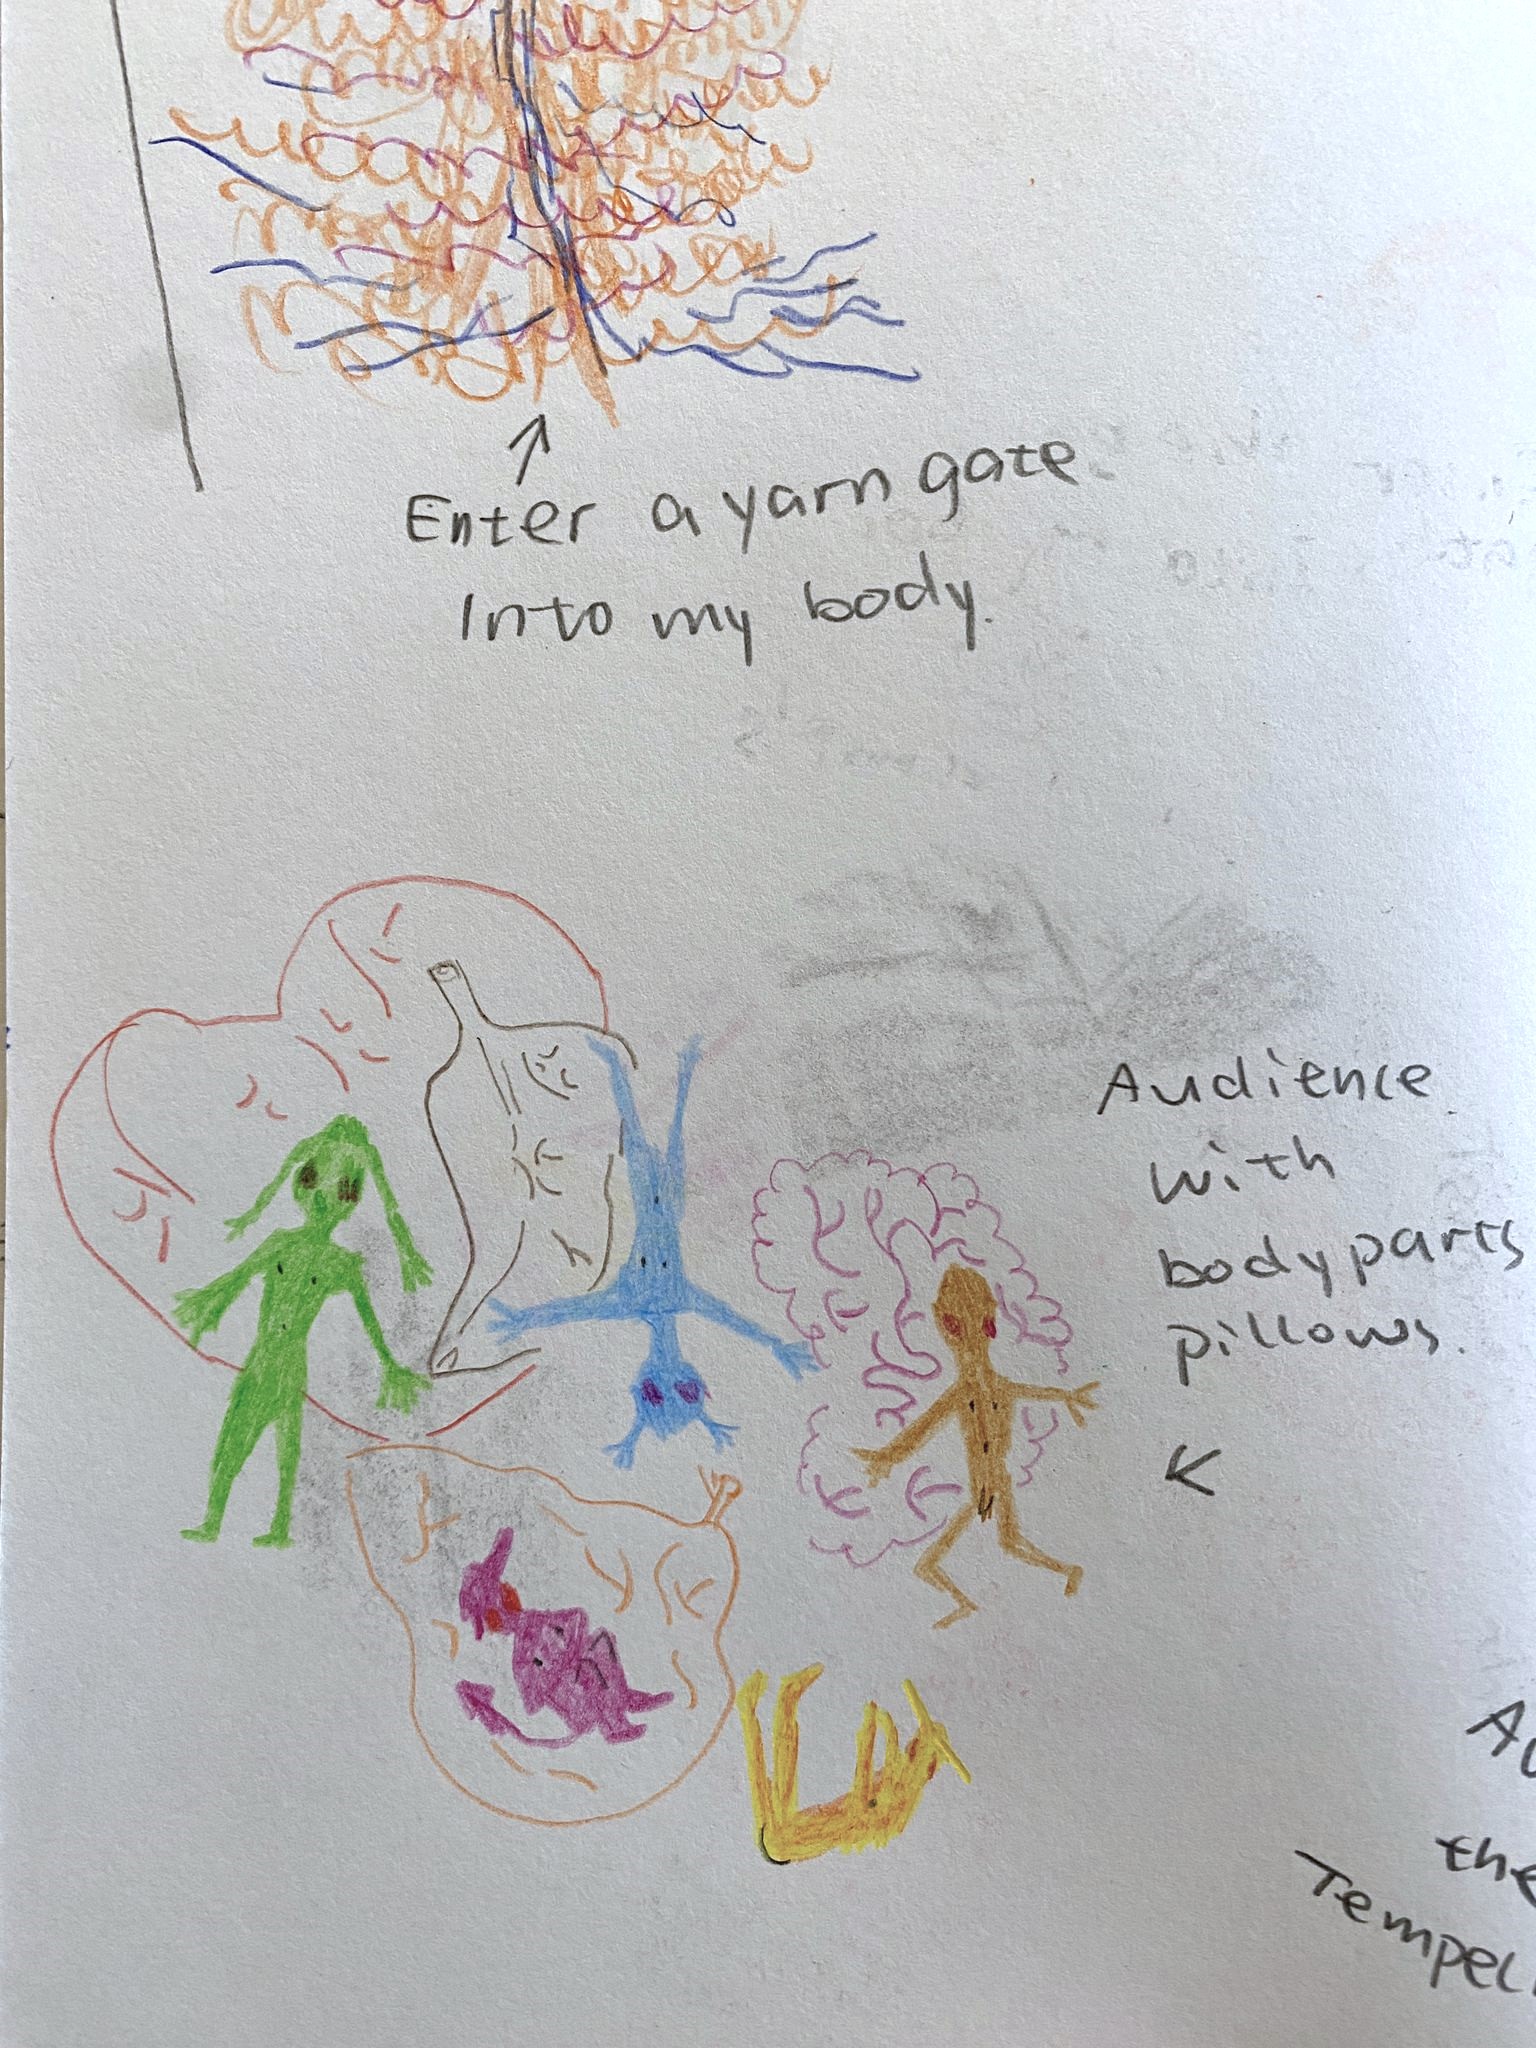 Enter a yarn gate
Into my body.
Audience
with
body parts
pillows.
the